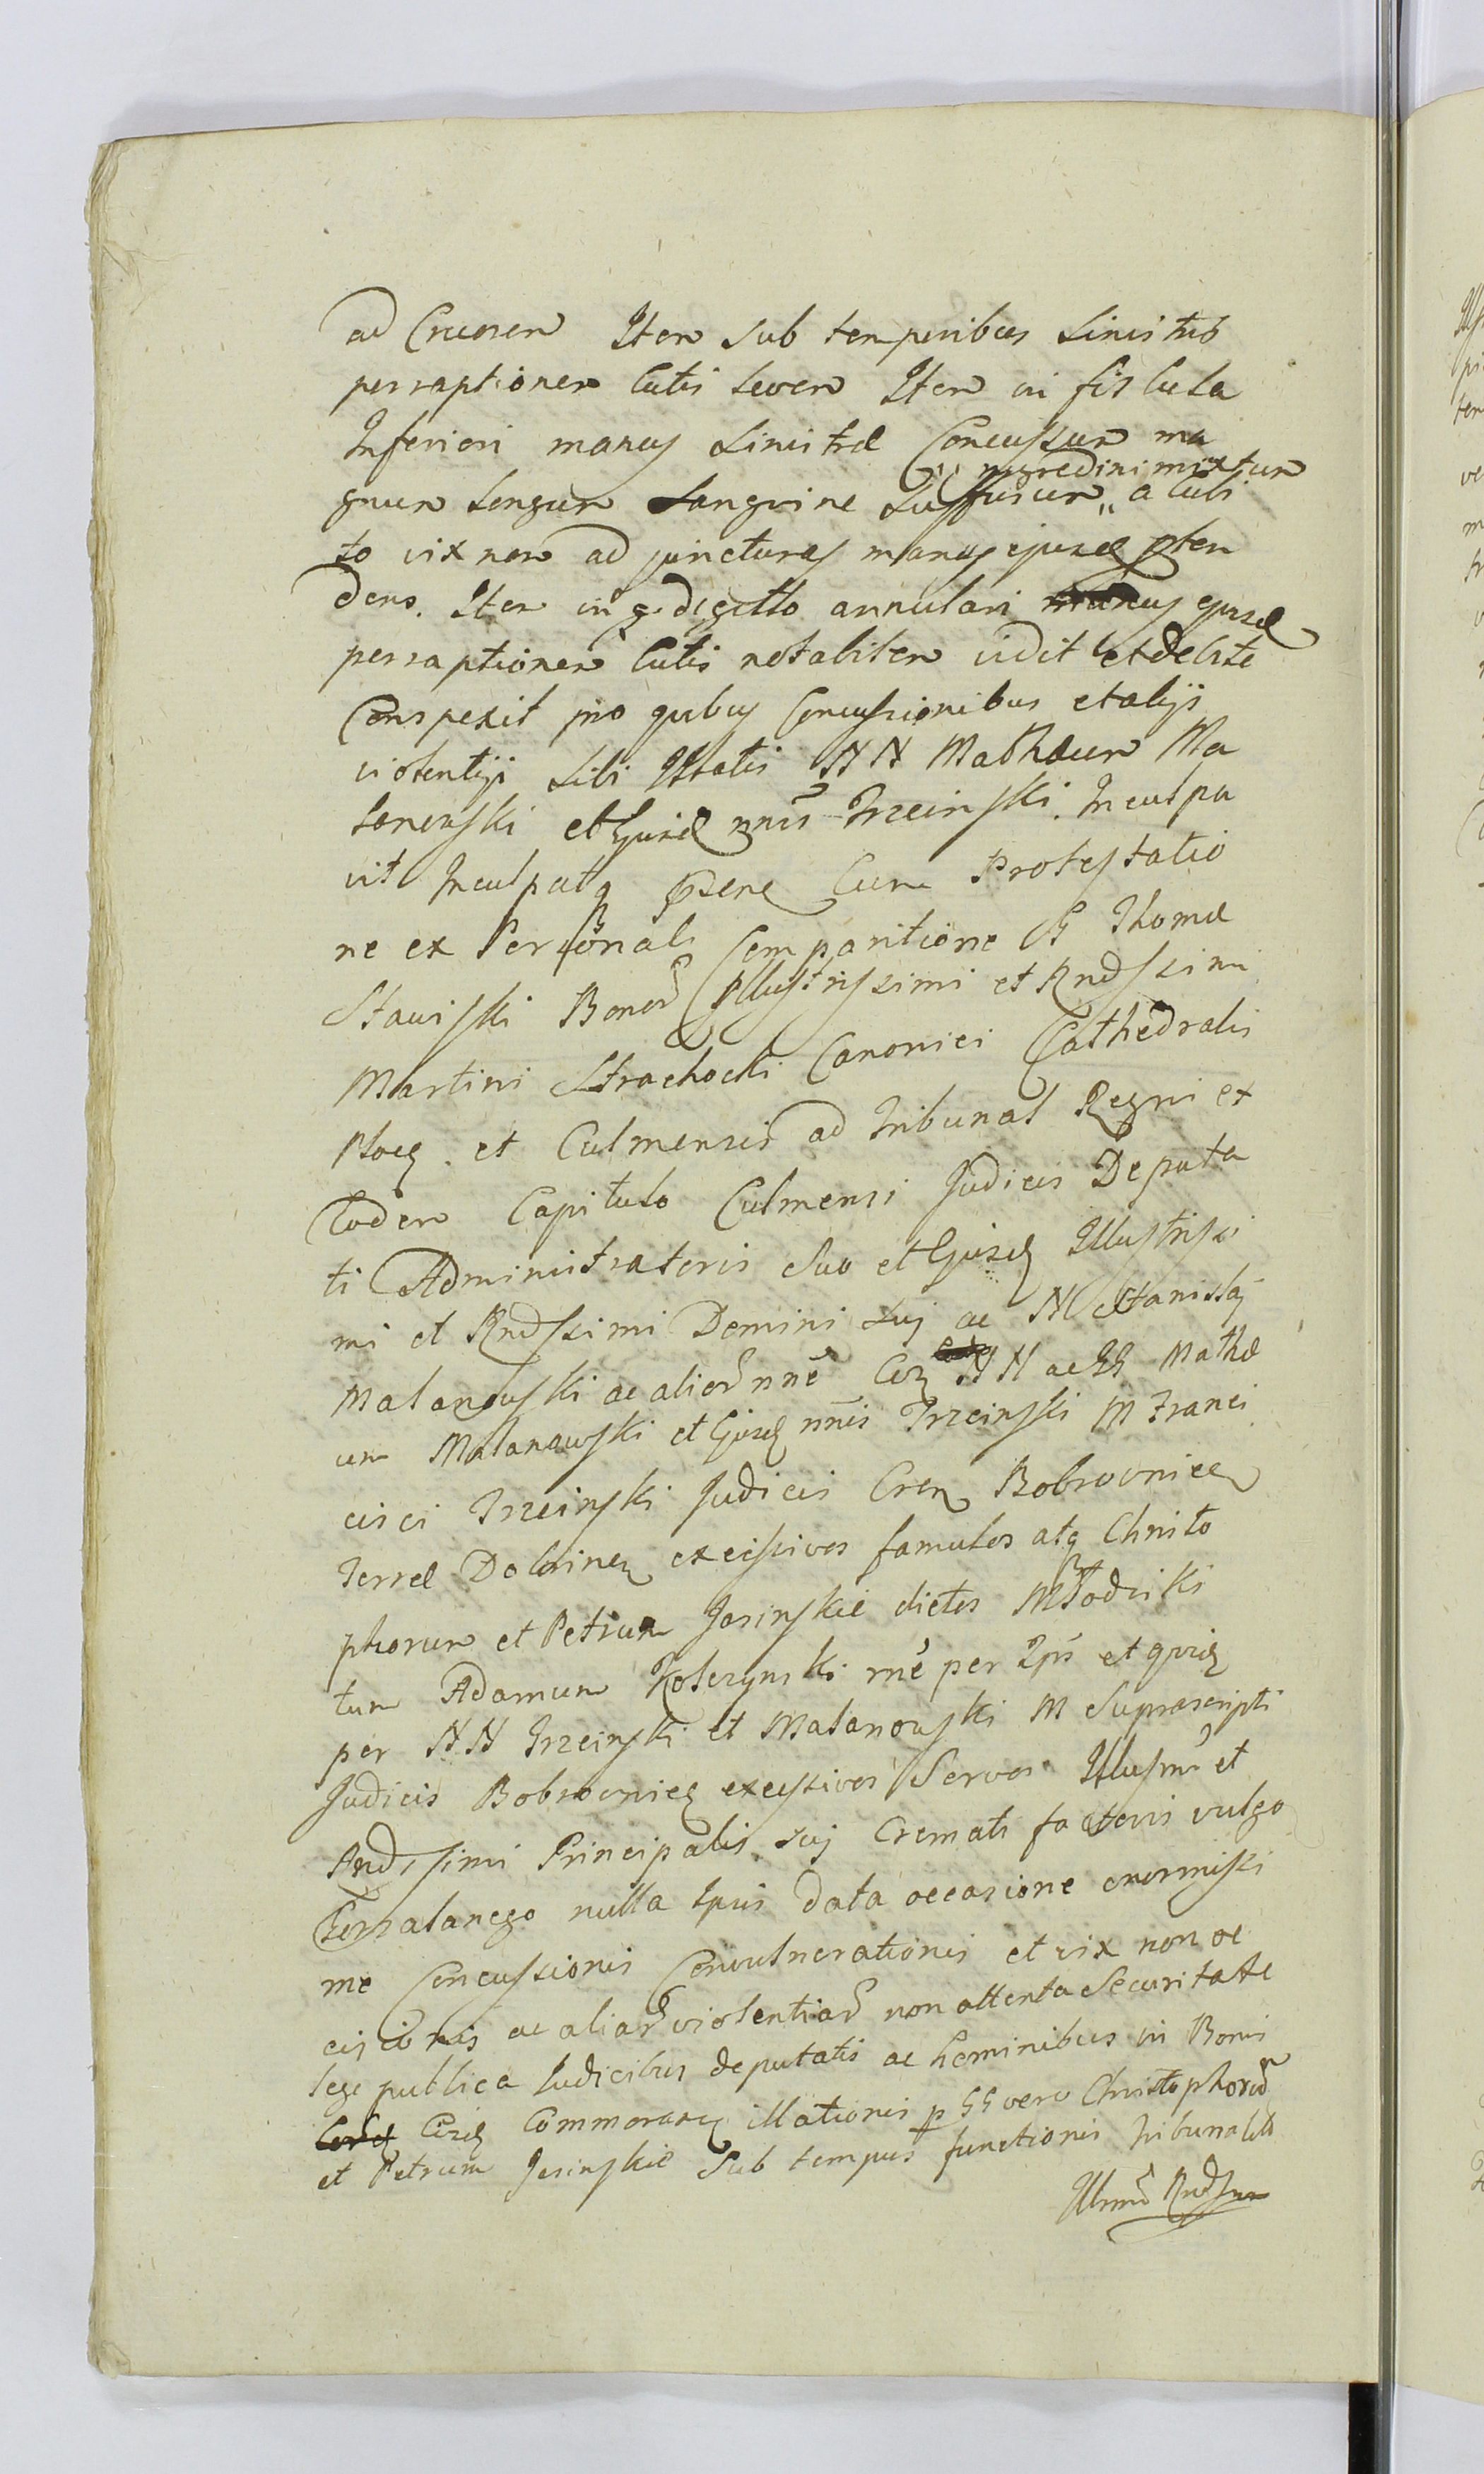 ad Cruorem Item sub temporibus sinistris
perraptionem Cutis levem Item in fistula
Inferiori manus sinistræ Concussum ma
nigredini mixtum
gnum longum sanguine suffusum a Cubi
to vix non ad juncturas manus ejusd proten
dens. Item in digitto annulari manus ejusd
perraptionem Cutis notabilem vidit et debite
Conspexit pro quibus Concussionibus et alijs
violentijs sibi Illatis NN Mathæum Ma
lanowski et Ejusd nnis Trzcinski. Inculpa
vit Inculpatq Cum Protestatio
ne ex Personali Comparitione G Thomæ
Stawiski Bonor Illustrissimi et Rndssimi
Martini Strachocki Canonici Cathedralis
Plocen. et Culmensis ad Tribunal Regni ex
Eodem Capitulo Culmensi Judicis Deputa
ti Administratoris suo et Ejusd Illustrissi
mi et Rndssimi Domini sui ac N Stanislai
Malanowski ac alior nne Con NN ac GG Mathæ
um Malanowski et Ejusd nnis Trzcinski M Franci
cisci Trzcinski Judicis Cren Bobrovnicen
Terræ Dobrinen excessivos famulos atq Christo
phorum et Petrum Josinskie dictos Młodziki
tum Adamum me per Ips et quid
per NN Trzcinski et Malanowski M Suprascripti
Judicis Bobrovnicen excessivos Servos Illusmi et
Rndssimi Principalis sui Cremati factoris vulgo
nulla Ipsis data occasione enormissi
me Concussionis Convulnerationis et vix non oc
cisionis ac aliar violentiar non attenta Securitate
lege publica Judicibus deputatis ac hominibus in Bonis
Eord Commoran illationis p GG vero Christophorum
et Petrum Josinskie sub tempus functionis Tribunalit
Illmi Rndssimi